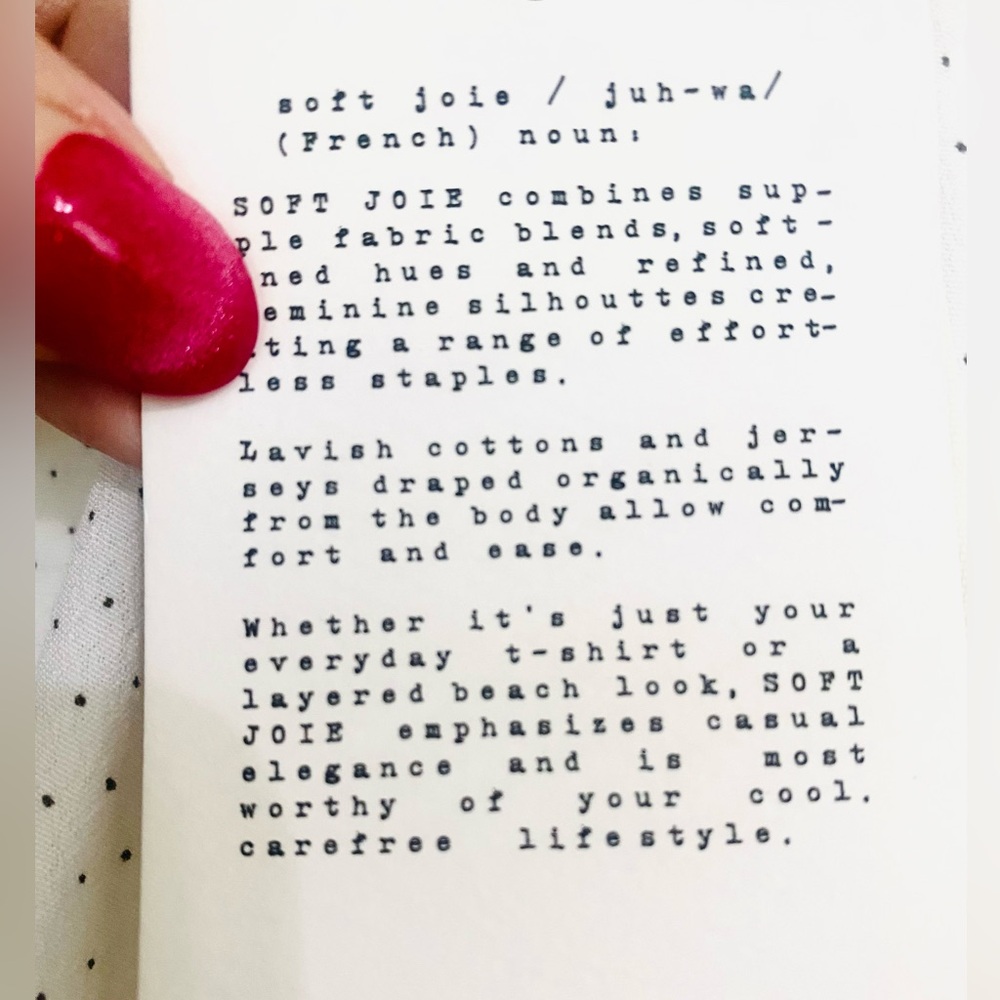 soft joie / juh-wa/
(French) noun:
SOFT JOIE combines sup-
ple fabric blends, soft-
ned hues and refined,
eminine silhouttes cre-
ting a range of effort-
less staples.
Lavish cottons and jer-
seys draped organically
from the body allow com-
fort and ease.
Whether it's just your
everyday t-shirt or a
layered beach look, SOFT
JOIE emphasizes casual
elegance and is most
worthy of your cool.
carefree lifestyle.